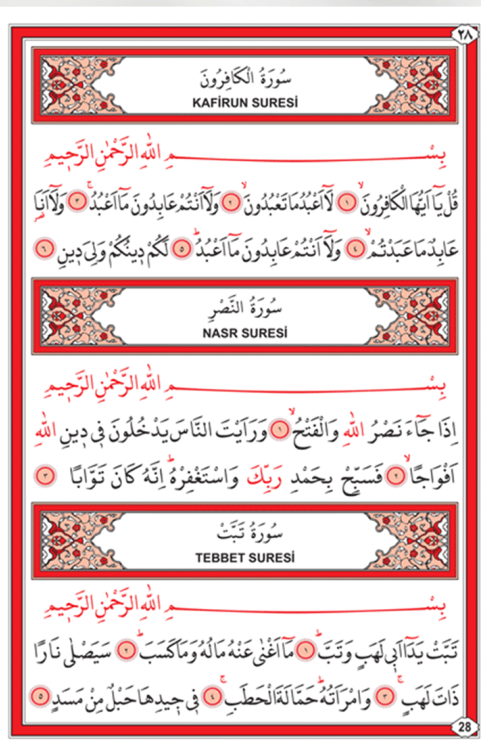 ٢٨
سُورَةُ الْكَافِرُونَ
KAFİRUN SURESİ
بِسْمِ اللهِ الرَّحْمٰنِ الرَّحٖيمِ
قُلْ يَٓا اَيُّهَا الْكَافِرُونَۙ ﴿١﴾ لَٓا اَعْبُدُ مَا تَعْبُدُونَۙ ﴿٢﴾ وَلَٓا اَنْتُمْ عَابِدُونَ مَٓا اَعْبُدُۚ ﴿٣﴾ وَلَٓا اَنَا۬
عَابِدٌ مَا عَبَدْتُمْۙ ﴿٤﴾ وَلَٓا اَنْتُمْ عَابِدُونَ مَٓا اَعْبُدُۜ ﴿٥﴾ لَكُمْ دٖينُكُمْ وَلِيَ دٖينِ ﴿٦﴾
سُورَةُ النَّصْرِ
NASR SURESİ
بِسْمِ اللهِ الرَّحْمٰنِ الرَّحٖيمِ
اِذَا جَٓاءَ نَصْرُ اللهِ وَالْفَتْحُۙ ﴿١﴾ وَرَاَيْتَ النَّاسَ يَدْخُلُونَ فٖي دٖينِ اللهِ
اَفْوَاجًاۙ ﴿٢﴾ فَسَبِّحْ بِحَمْدِ رَبِّكَ وَاسْتَغْفِرْهُۜ اِنَّهُ كَانَ تَوَّابًا ﴿٣﴾
سُورَةُ تَبَّتْ
TEBBET SURESİ
بِسْمِ اللهِ الرَّحْمٰنِ الرَّحٖيمِ
تَبَّتْ يَدَٓا اَبٖي لَهَبٍ وَتَبَّۜ ﴿١﴾ مَٓا اَغْنٰى عَنْهُ مَالُهُ وَمَا كَسَبَۜ ﴿٢﴾ سَيَصْلٰى نَارًا
ذَاتَ لَهَبٍۚ ﴿٣﴾ وَامْرَاَتُهُۜ حَمَّالَةَ الْحَطَبِۚ ﴿٤﴾ فٖي جٖيدِهَا حَبْلٌ مِنْ مَسَدٍ ﴿٥﴾
28